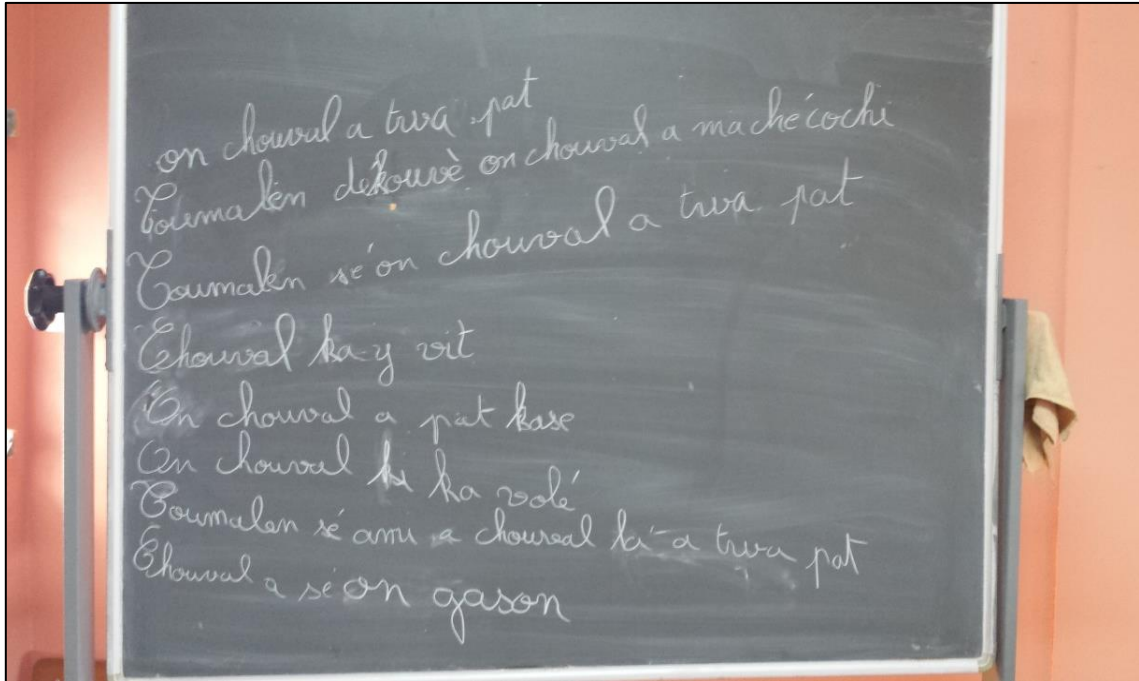 on chouval a twa pat
Toumalen dékouvè on chouval a maché cochi
Toumalen sé on chouval a twa pat
Chouval ka-y vit
On chouval a pat kase
On chouval ki ka volé
Toumalen sé ami a chouval la-a twa pat
Chouval a sé on gason